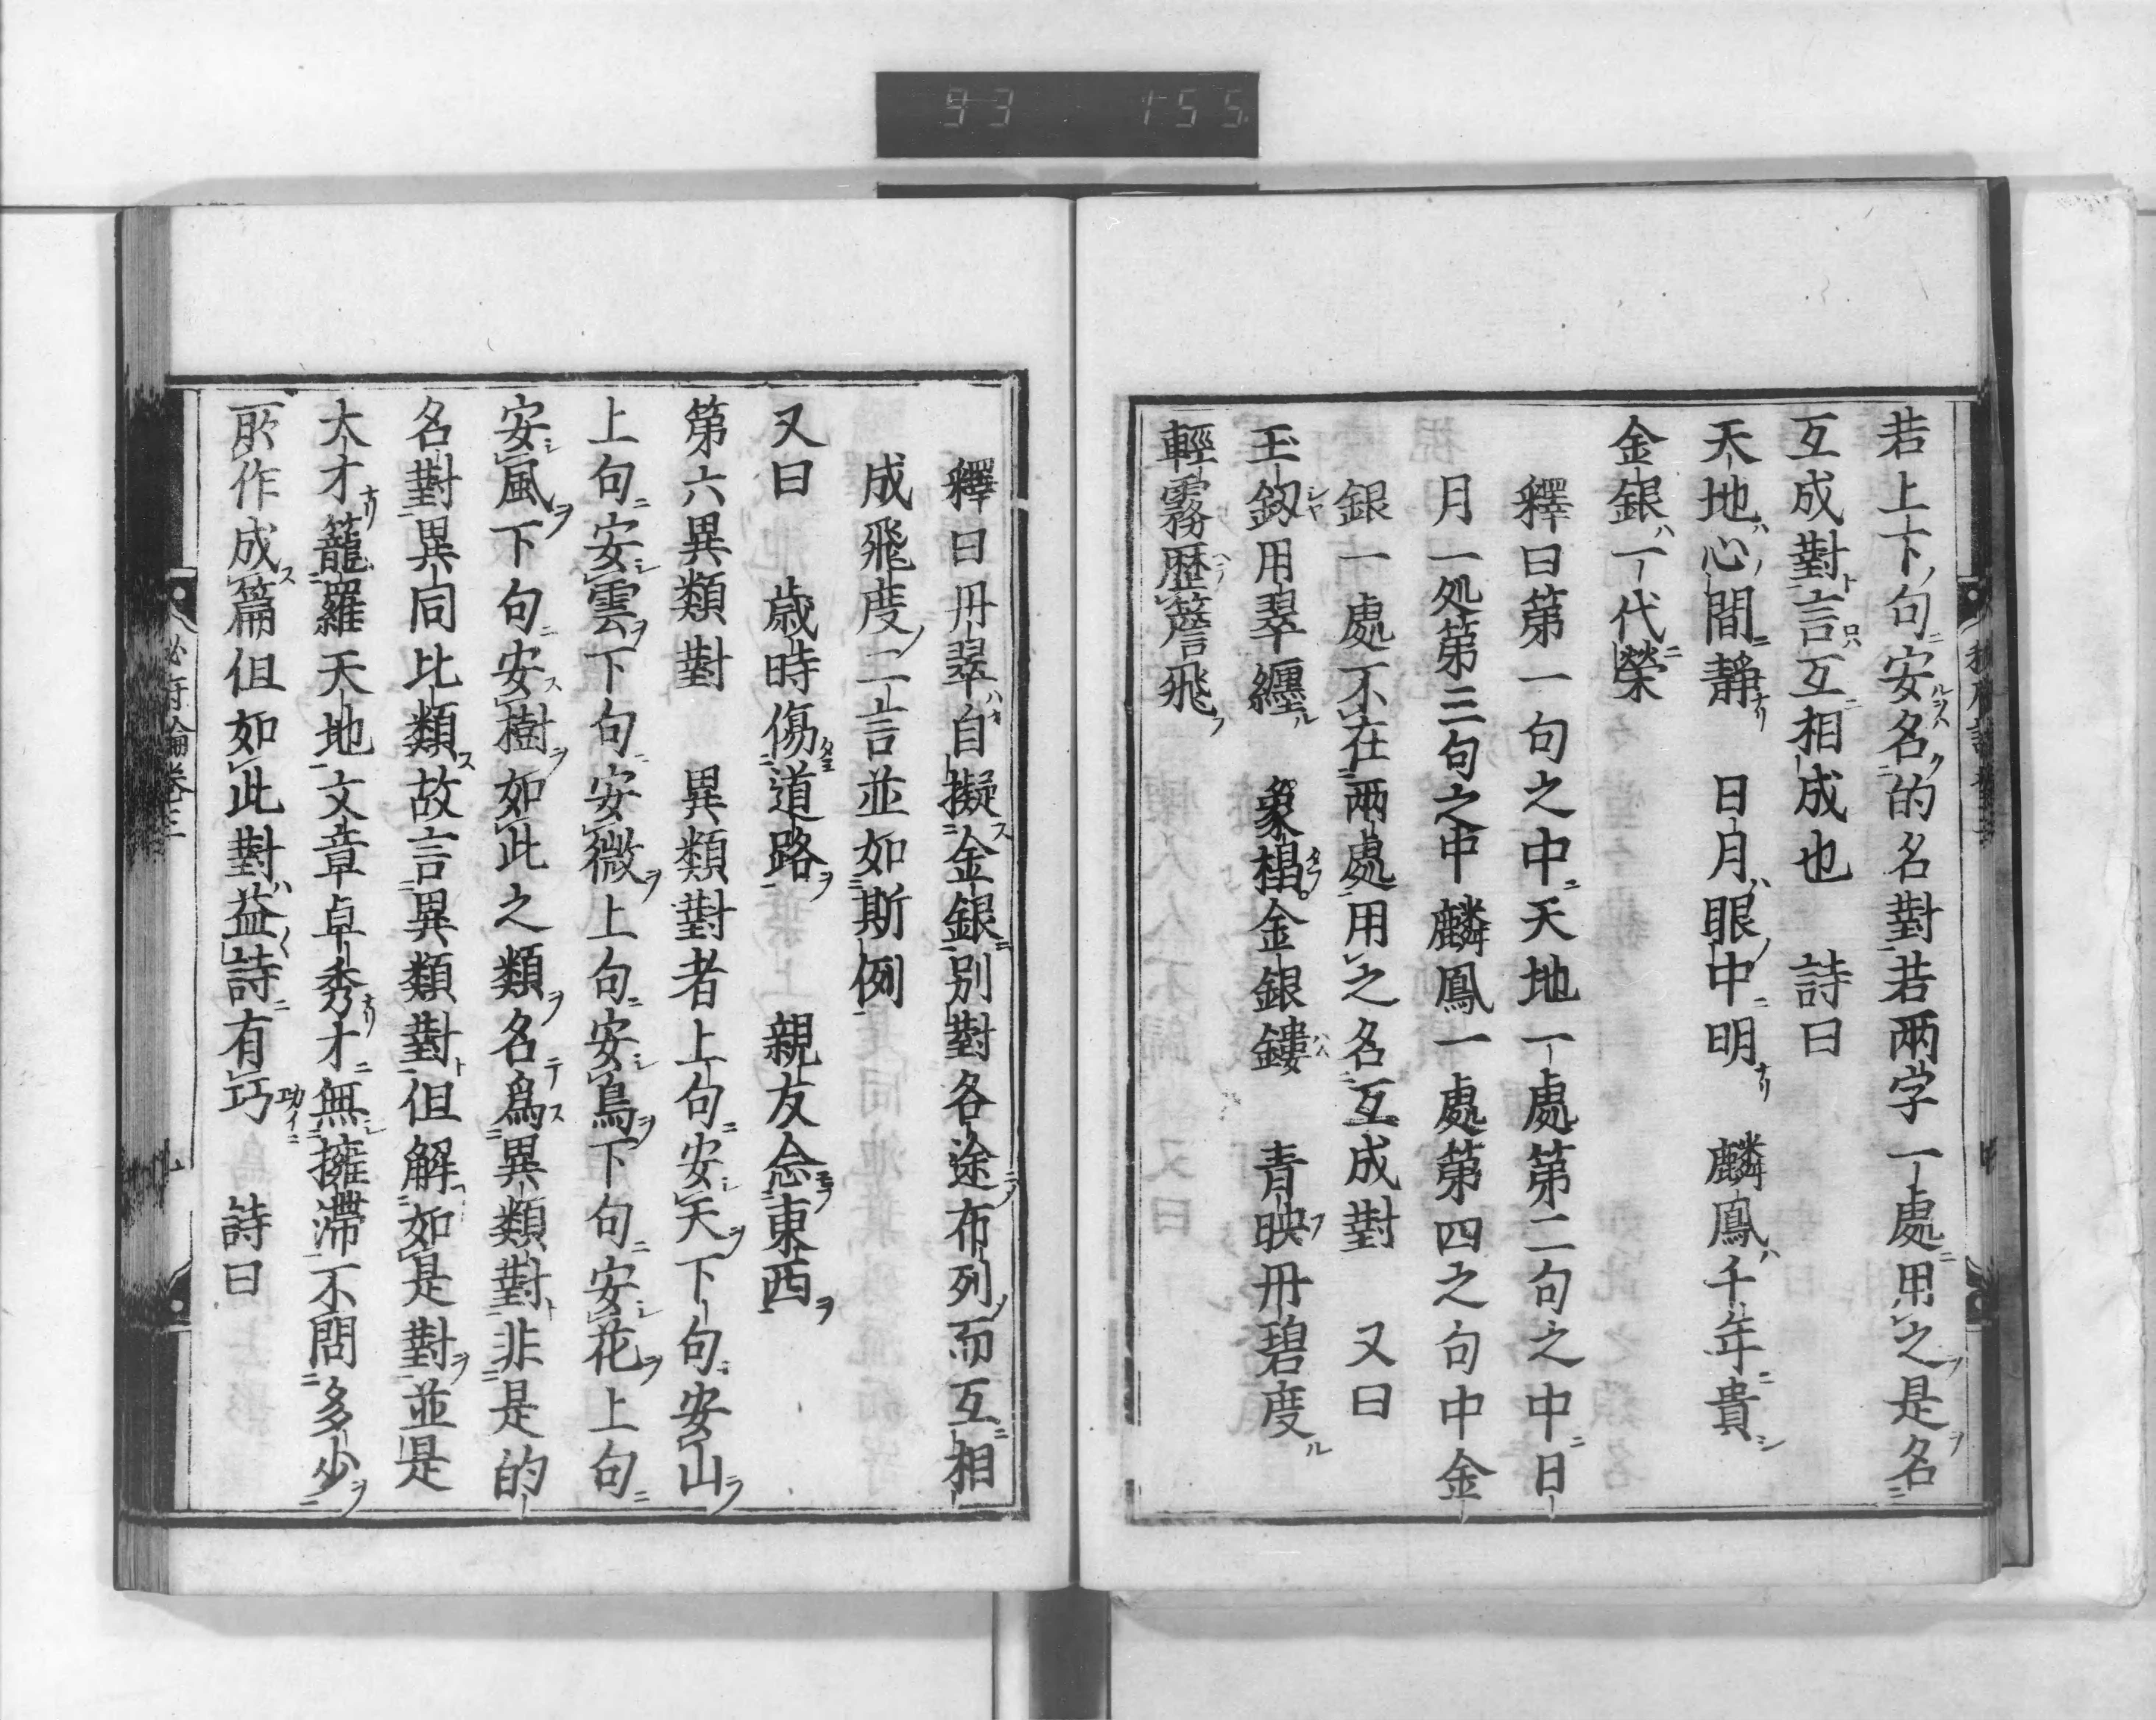 93 155
若上下句安名的名對若両字一處用之是名
互成對言互相成也　詩曰
天地心間靜　日月眼中明　麟鳳千年貴
金銀一代榮
釋曰第一句之中天地一處第二句之中日
月一処第三句之中麟鳳一處第四之句中金
銀一處不在兩處用之名互成對　又曰
玉釵用翠纏　象榻金銀鏤　青映丹碧度
輕霧歴簷飛
釋曰丹翠自擬金銀別對各途布列而互相
成飛度二言並如斯例
又曰　歳時傷道路　親友念東西
第六異類對　異類對者上句安天下句安山
上句安雲下句安微上句安鳥下句安花上句
安風下句安樹如此之類名爲異類對非是的
名對異同比類故言異類對但解如是對並是
大才籠羅天地文章卓秀才無擁滯不問多少
所作成篇但如此對益詩有巧　詩曰